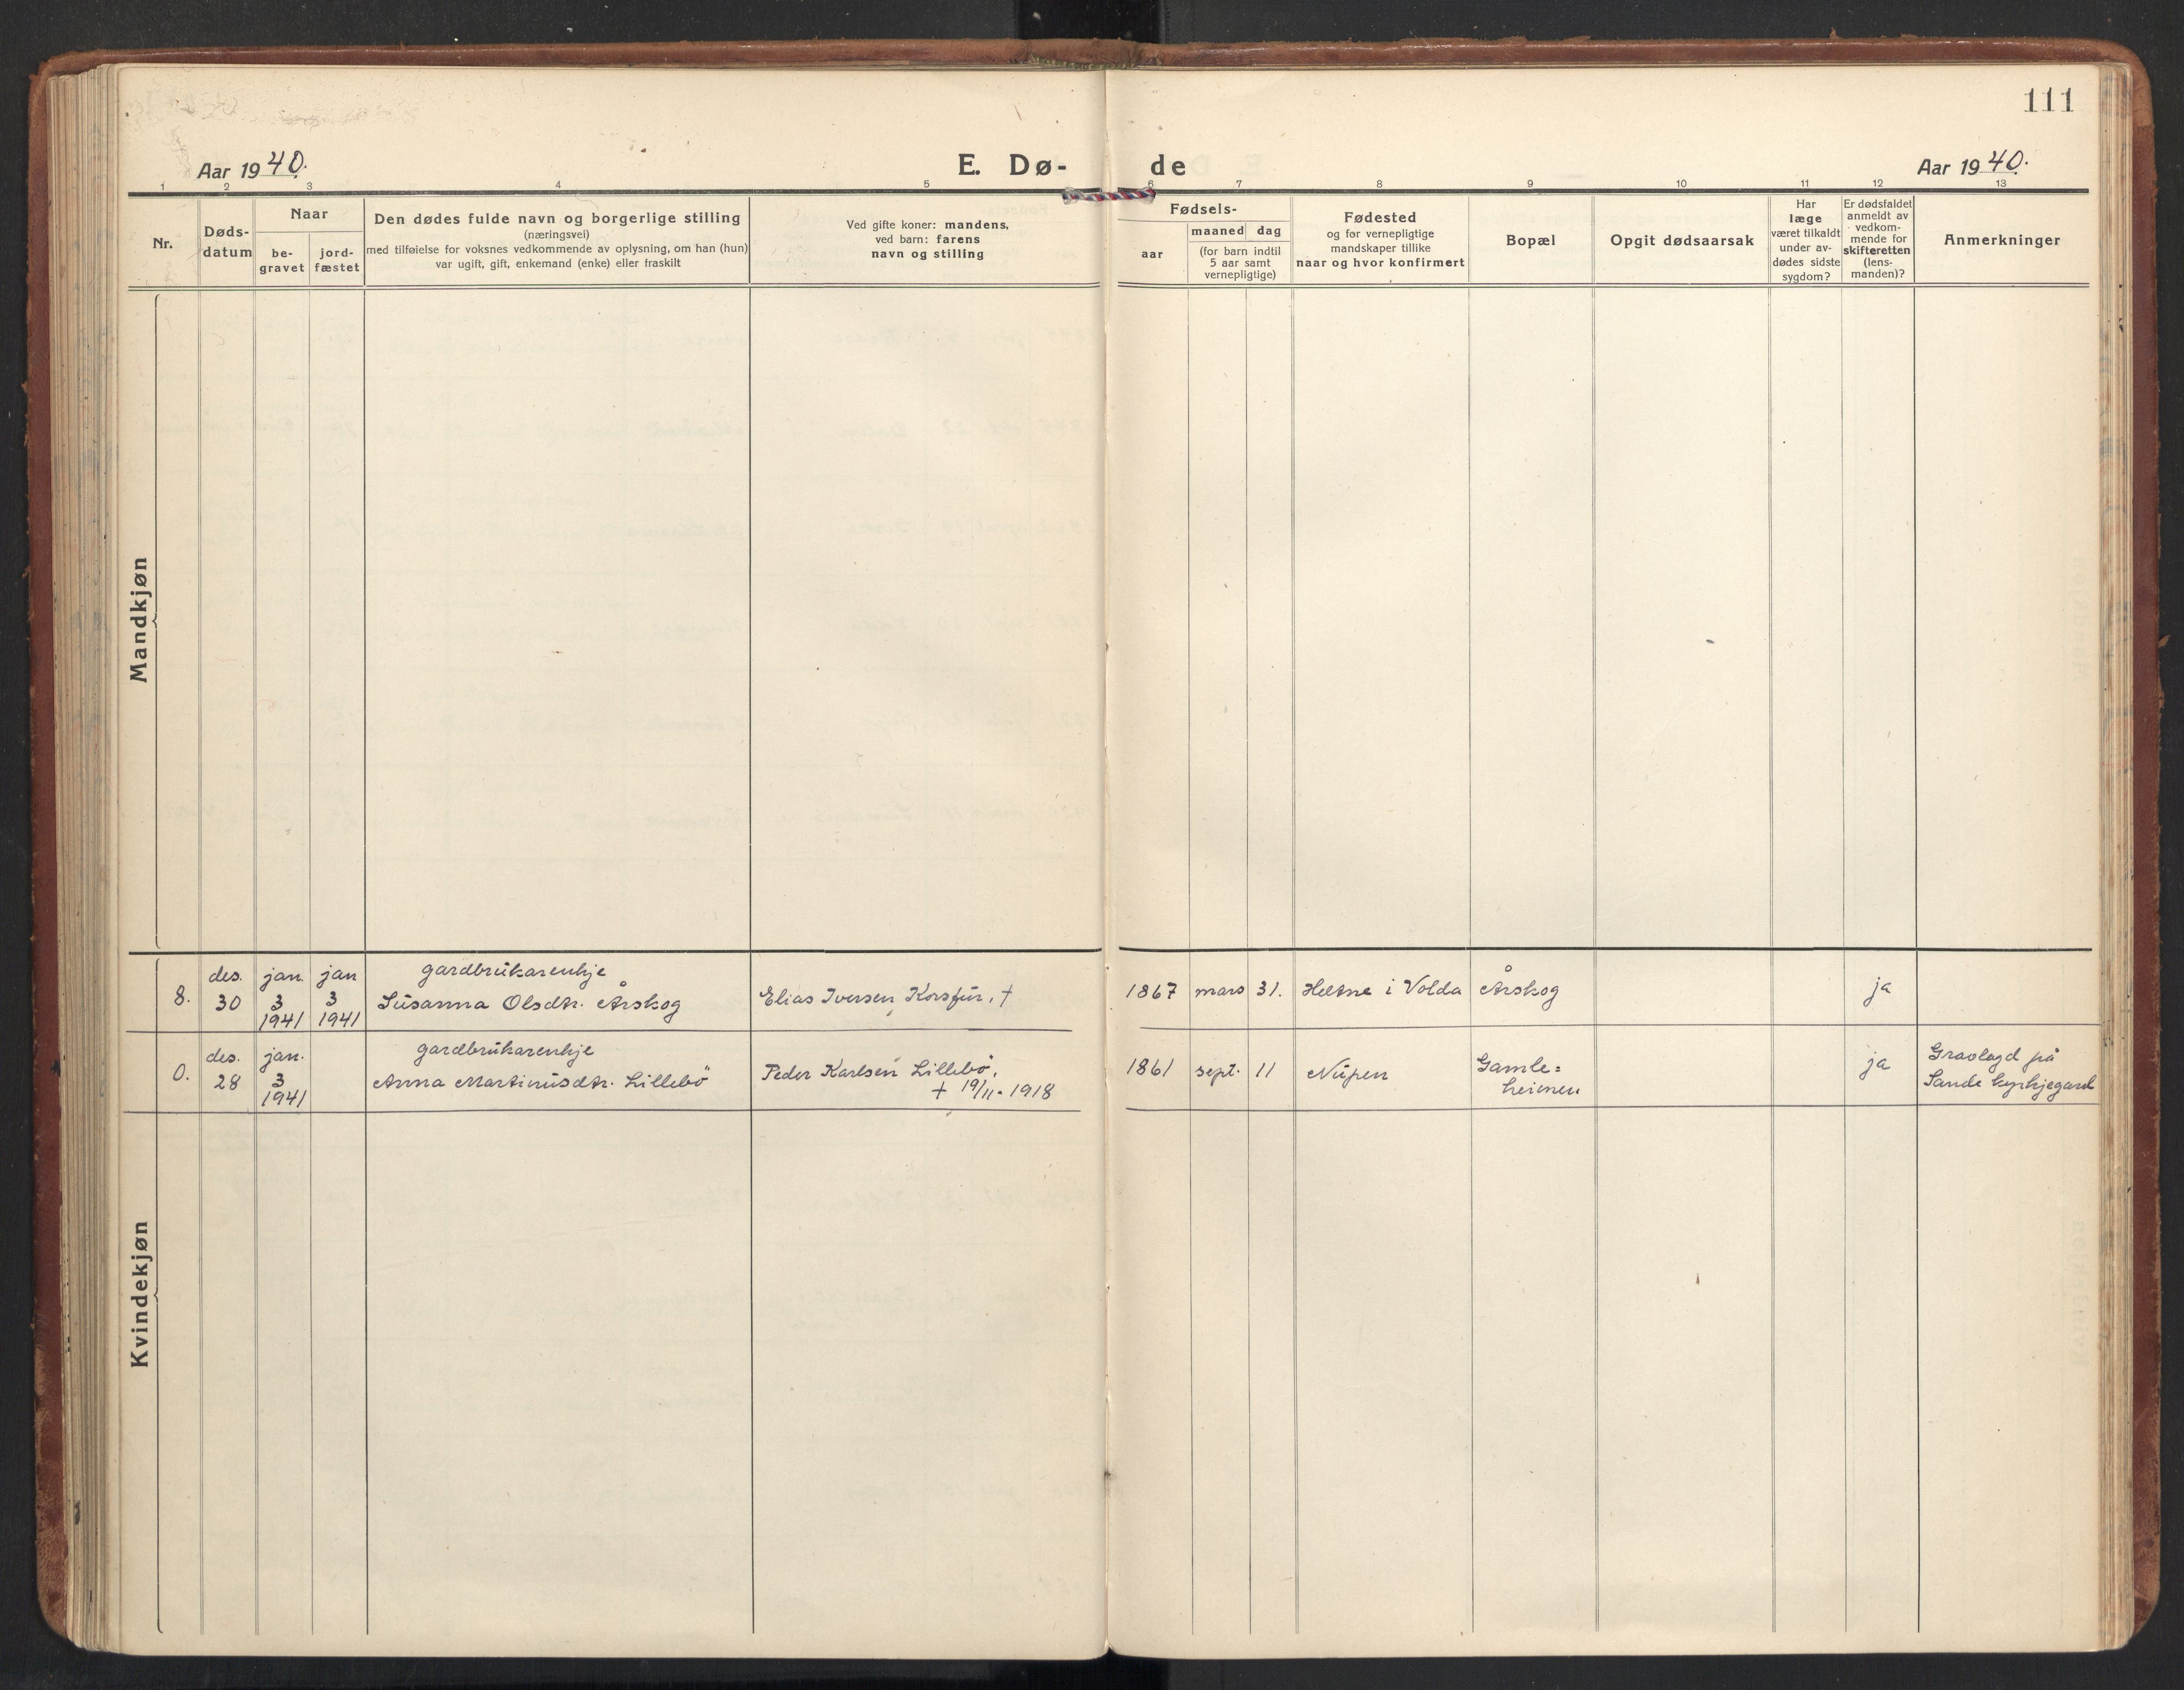 111
Aar 1940.
E. Dø-
de
Aar 1940.
1 2 3 4 5 6 7 8 9 10 11 12 13
Nr.
Døds-
datum
Naar
be-
gravet
jord-
fæstet
Den dødes fulde navn og borgerlige stilling
(næringsvei)
med tilføielse for voksnes vedkommende av oplysning, om han (hun)
var ugift, gift, enkemand (enke) eller fraskilt
Ved gifte koner: mandens,
ved barn: farens
navn og stilling
Fødsels-
aar
maaned dag
(for barn indtil
5 aar samt
vernepligtige)
Fødested
og for vernepligtige
mandskaper tillike
naar og hvor konfirmert
Bopæl
Opgit dødsaarsak
Har
læge
været tilkaldt
under av-
dødes sidste
sygdom?
Er dødsfaldet
anmeldt av
vedkom-
mende for
skifteretten
(lens-
manden)?
Anmerkninger
Mandkjøn
8.
des.
30
jan.
3
1941
jan
3
1941
gardbrukarenkje
Susanna Olsdtr. Årskog
Elias Iversen Korsfur, †
1867 mars 31. Heltne i Volda Årskog ja
0.
des.
28
jan.
3
1941
gardbrukarenkje
Anna Martinusdtr. Lillebö
Peder Karlsen Lillebö,
† 19/11-1918
1861 sept. 11 Nupen
Gamle=
heimen.
ja
Gravlagd på
Sande kyrkjegard
Kvindekjøn